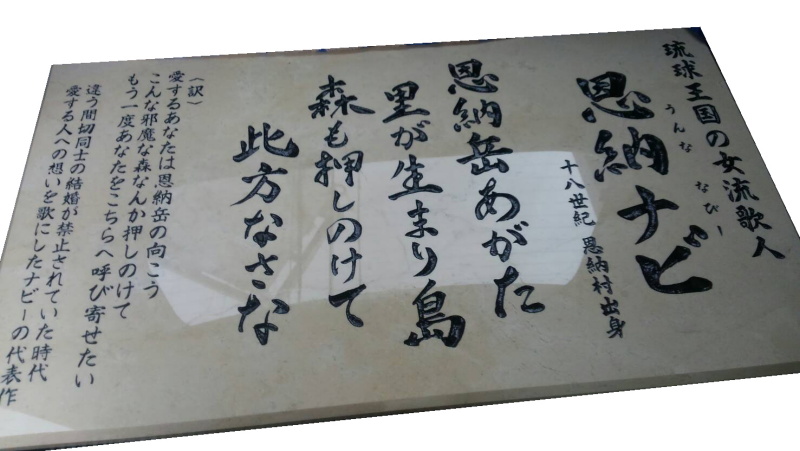 琉球王国の女流歌人
うんな なびー
恩納ナビ
十八世紀 恩納村出身
恩納岳あがた
里が生まり島
森も押しのけて
此方なさな
（訳）
愛するあなたは恩納岳の向こう
こんな邪魔な森なんか押しのけて
もう一度あなたをこちらへ呼び寄せたい
違う間切同士の結婚が禁止されていた時代
愛する人への想いを歌にしたナビーの代表作